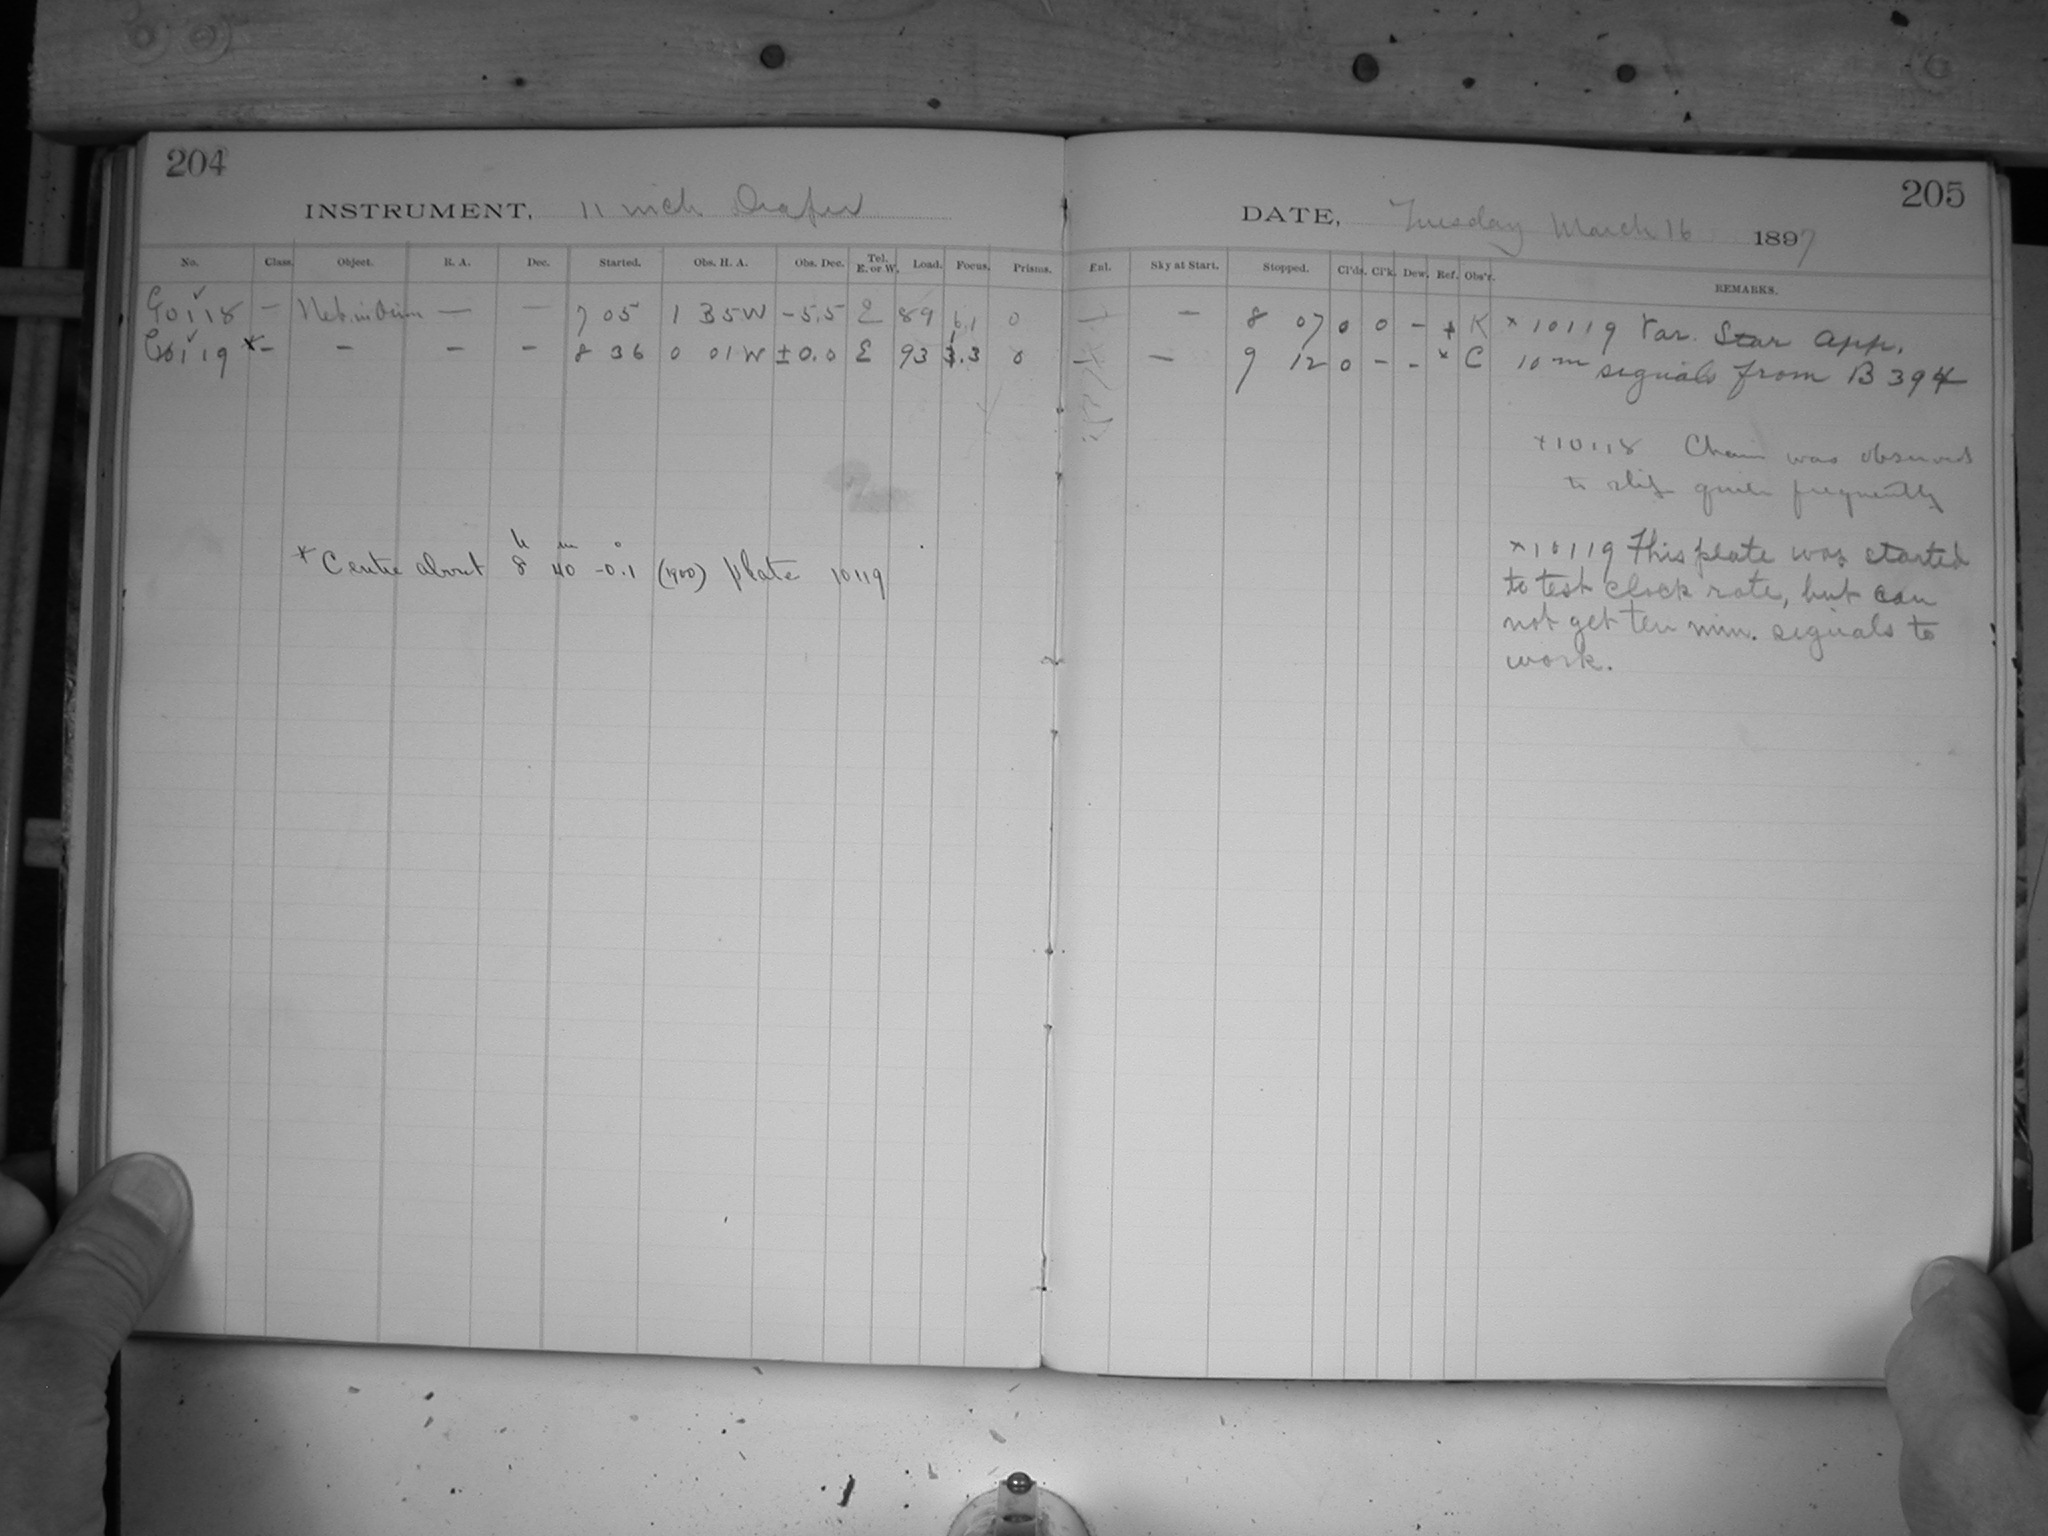 204
INSTRUMENT, 11 inch Draper
No. Class. Object. R. A. Dec. Started. Obs. H. A. Obs. Dec. Tel. E. or W. Load. Focus. Prisms.
C 10118 — Neb. in Orion — — 7 05 1 35 W -5.5 E 89 6.1 0
C 10119 *— — — — 8 36 0 01 W ±0.0 E 93 3.3 0
* Centre about 8h 40m -0°.1 (1900) plate 10119
205
DATE, Tuesday March 16 1897
Enl. Sky at Start. Stopped. Cl'ds. Cl'k. Dew. Ref. Obs'r. REMARKS.
— 8 07 0 0 - * K × 10119 Var. Star App.
— — 9 12 0 - - × C 10 m signals from B 394
×10118 Chain was observed
to slip quite frequently
×10119 This plate was started
to test clock rate, but can
not get ten min. signals to
work.